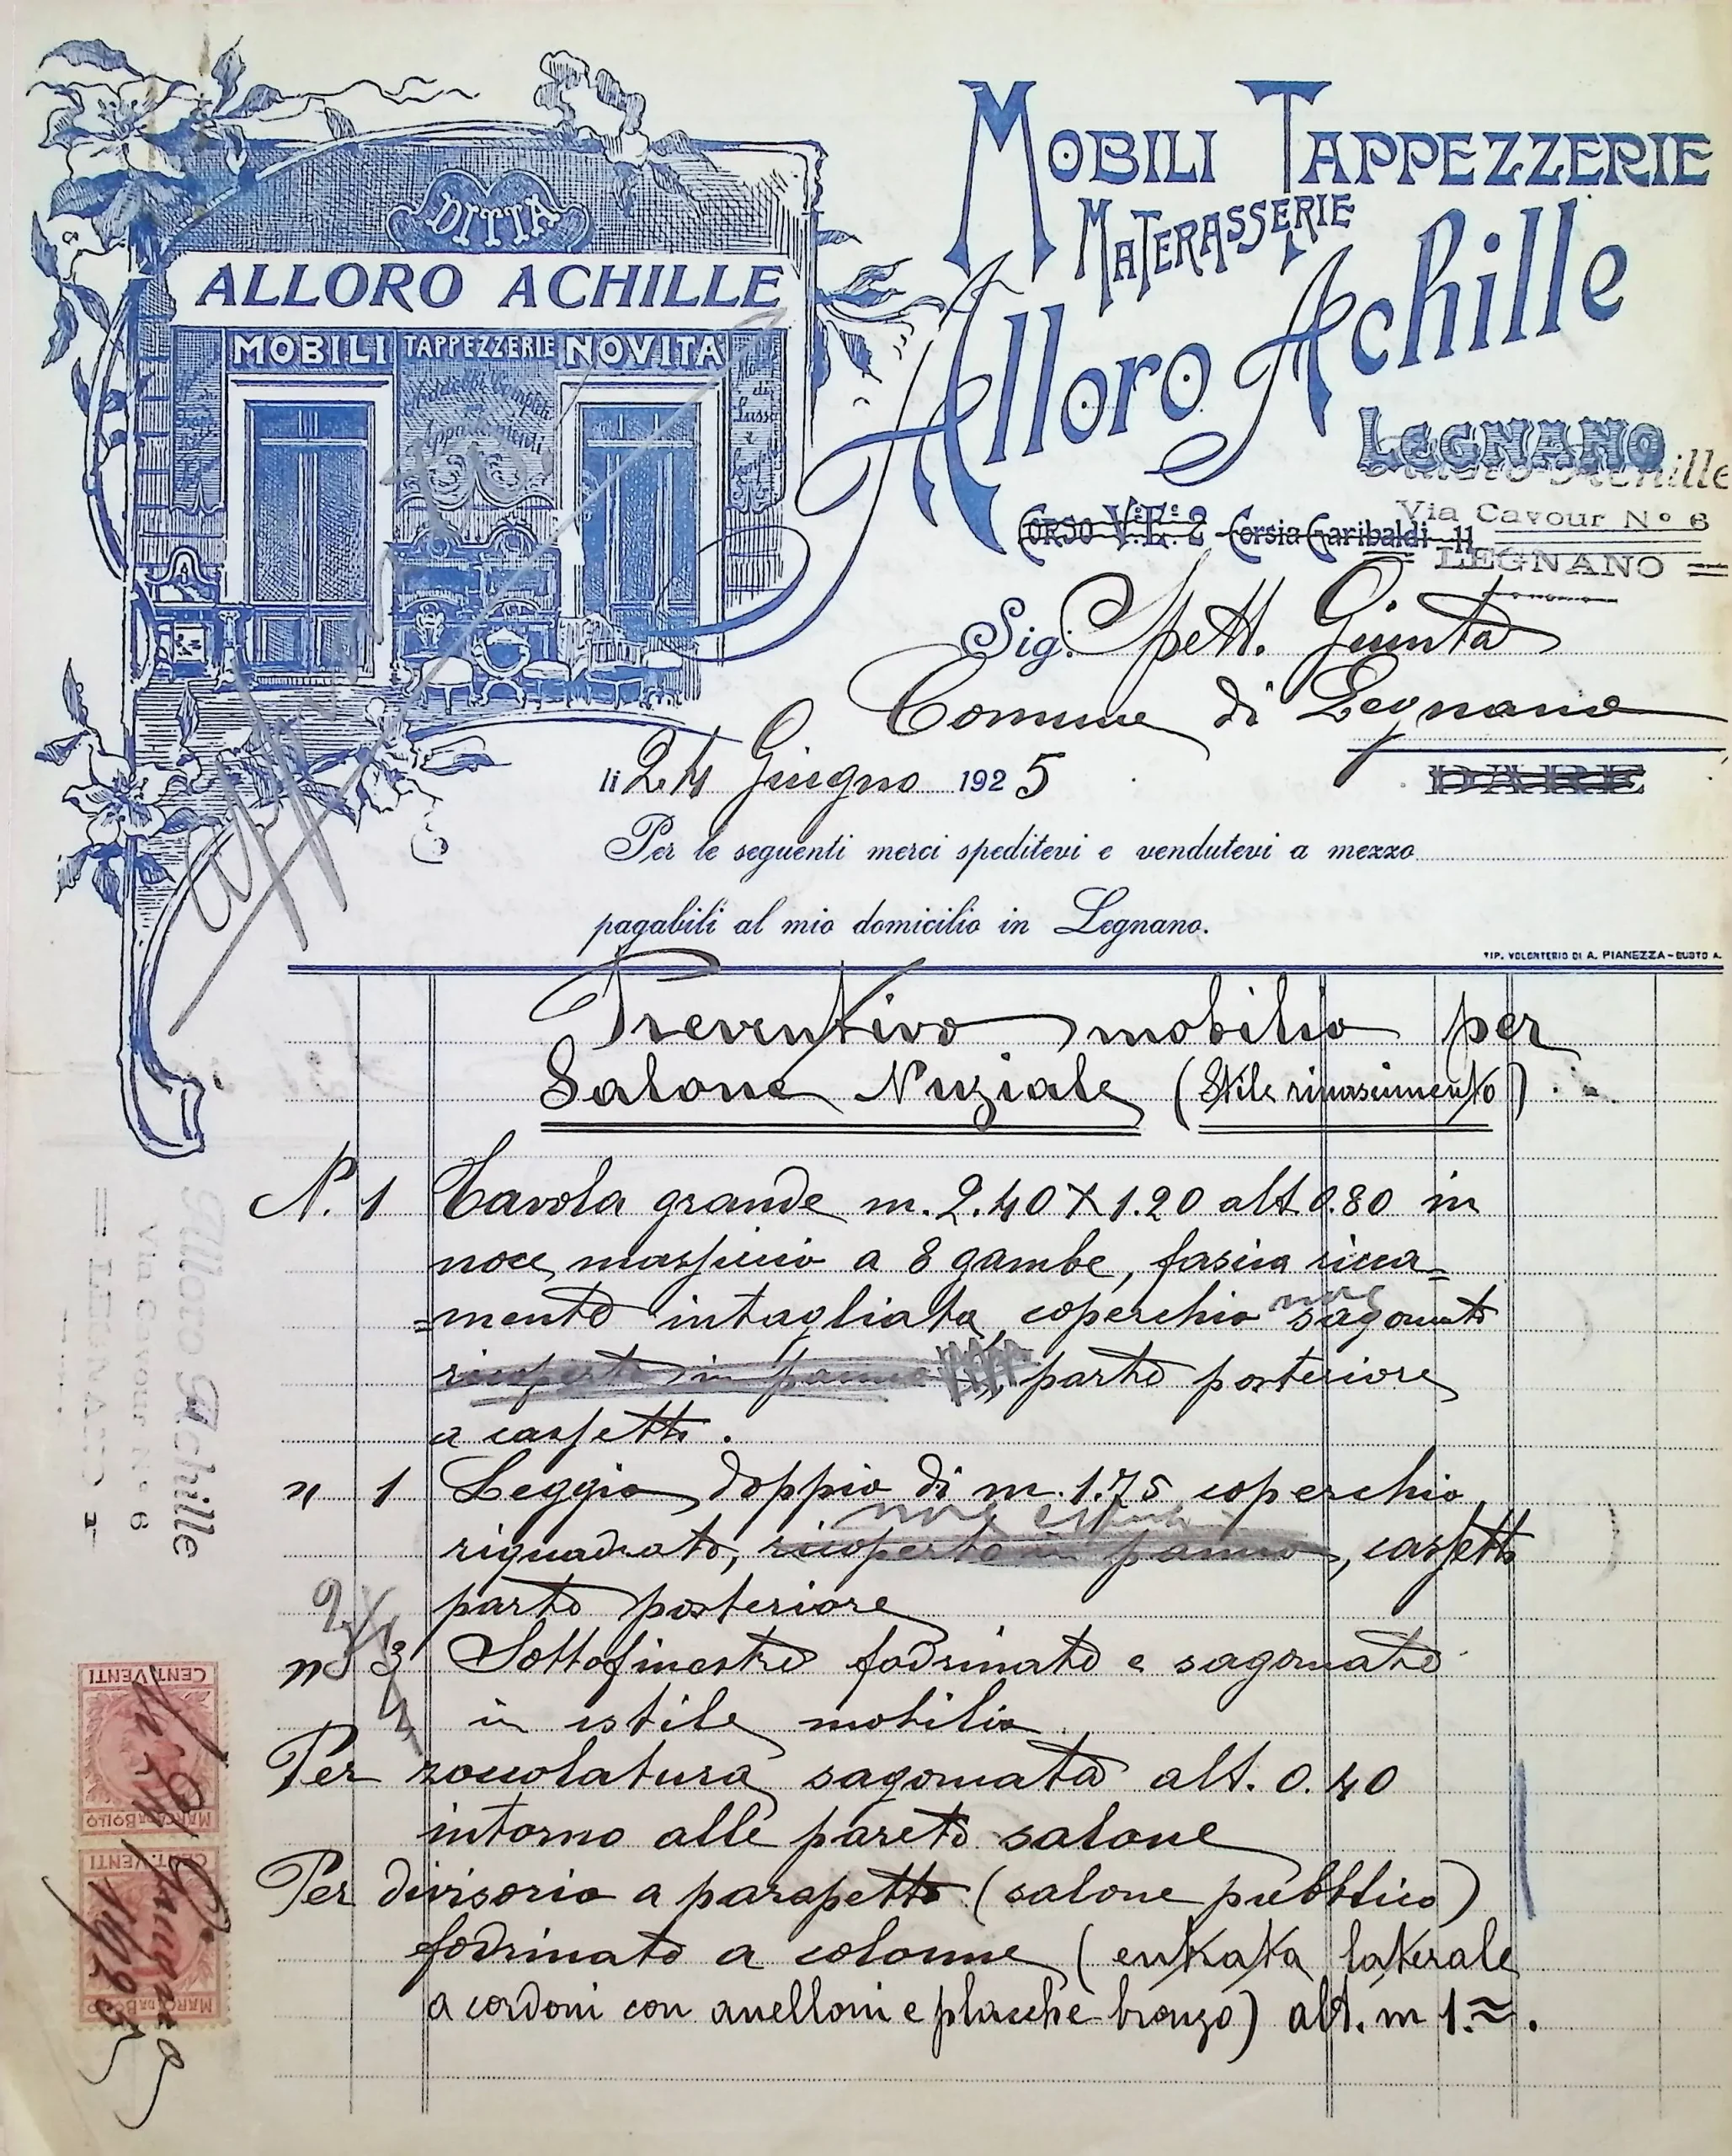 DITTA
ALLORO ACHILLE
MOBILI TAPPEZZERIE NOVITA
Addobbi Completi
Appartamenti
di
Lusso
e
MOBILI TAPPEZZERIE
MATERASSERIE
Alloro Achille
LEGNANO
Alloro Achille
Corso V.E. 2 - Corsia Garibaldi - 11
Via Cavour N° 6
LEGNANO
Sig. Spett. Giunta
Comune di Legnano
li 24 Giugno 1925
DARE
Per le seguenti merci speditevi e vendutevi a mezzo
pagabili al mio domicilio in Legnano.
TIP. VOLONTERIO DI A. PIANEZZA - BUSTO A.
Preventivo mobilio per
Salone Nuziale (Stile rinascimento)
N. 1 Tavola grande m. 2.40 X 1.20 alt. 0.80 in
noce massiccio a 8 gambe, fascia ricca=
=mente intagliata, coperchio noce sagomato
ricoperto in panno, parte posteriore
a cassetti.
n 1 Leggio doppio di m. 1.75 coperchio
noce
riquadrato, ricoperto in panno, cassetti
parte posteriore
2
n 3 Sottofinestre fodrinate e sagomate
4
in istile mobilio
Per zoccolatura sagomata alt. 0.40
intorno alle parete salone
Per divisorio a parapetto (salone pubblico)
fodrinato a colonne (entrata laterale
a cordoni con anelloni e placche bronzo) alt. m 1.=.
Alloro Achille
Via Cavour N° 6
= LEGNANO =
CENT. VENTI
MARCA DA BOLLO
CENT. VENTI
MARCA DA BOLLO
li 24 Giugno
1925